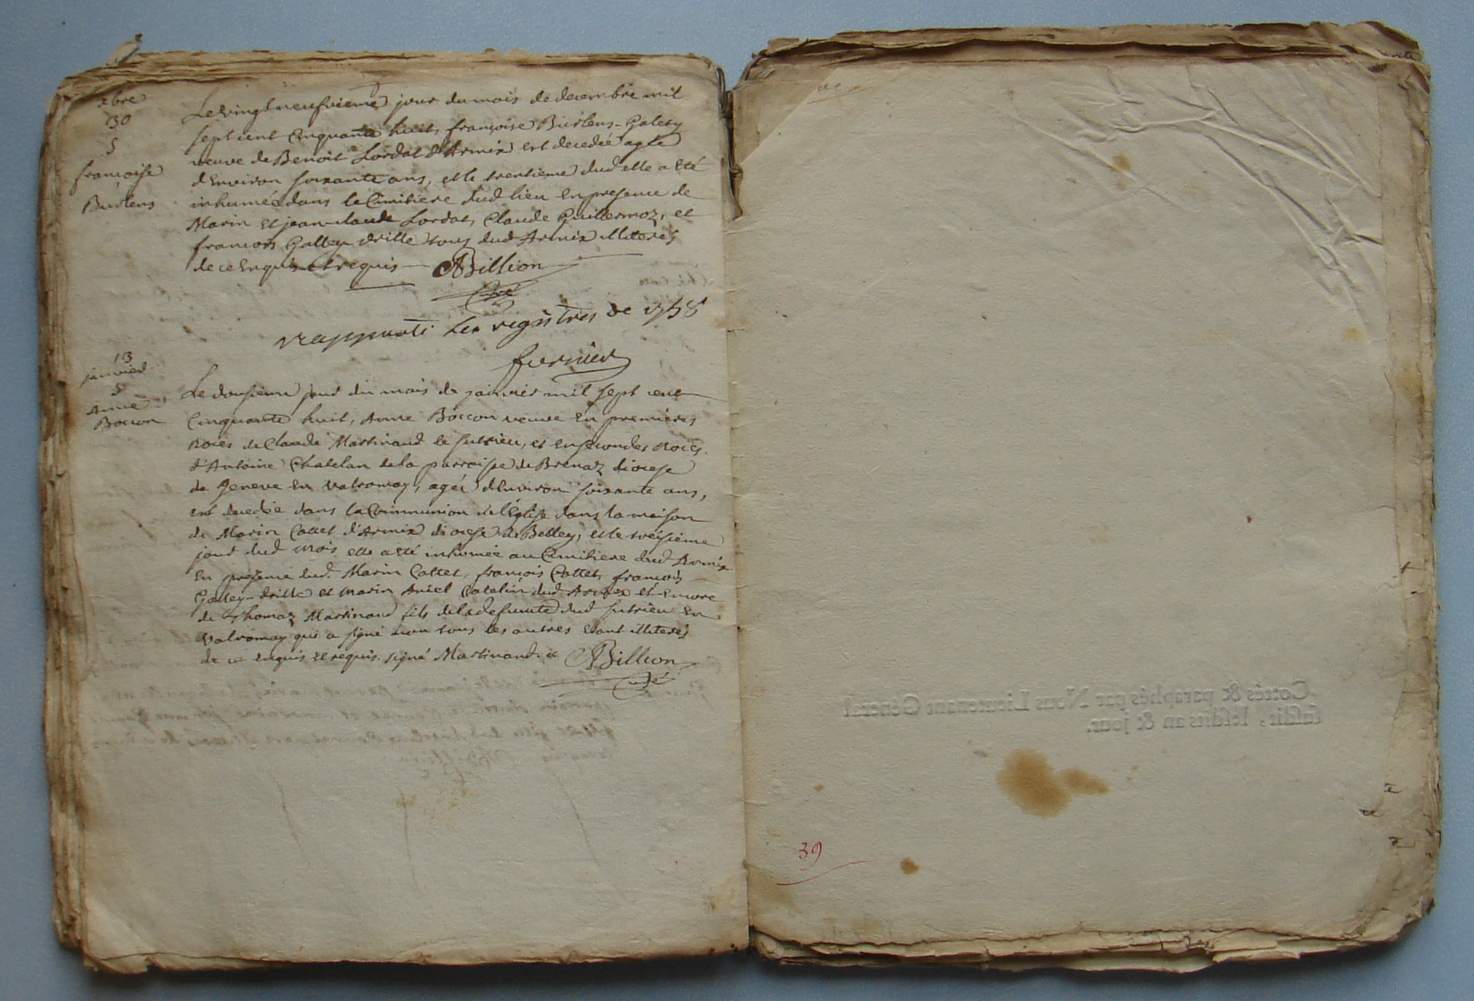 xbre
30
S
françoise
Burlens
Le vingt neufvieme jour du mois de decembre mil
sept cent cinquante huit, françoise Burlens-Galley
veuve de Benoit Lordat d'Armix est decedée agée
d'Environ soixante ans, et le trentieme dud elle a été
inhumée dans le Cimitiere dud lieu En presence de
Marin et jean-claude Lordat, Claude Guillermoz, et
francois Galley drille tous dud Armix illiterés
de ce Enquis et requis ABillion
Cré
rapporté Les registres de 1758
furnier
13
janvier
S
Anne
Boccon
Le dousieme jour du mois de janvier mil sept cent
Cinquante huit, Anne Boccon veuve En premieres
noces de Claude Martinand de sutrieu, et en secondes noces
d'Antoine Chatelan de la parroisse de Brenaz diocese
de Geneve En valromay, agée d'Environ soixante ans,
est decedée dans la Communion de l'Eglise dans la maison
de Marin Cattet d'Armix diocese de Belley, et le treisieme
jour dud mois elle a été inhumée au Cimitiere dud Armix
En presence dud. Marin Cattet, françois Cattet, françois
Galley-drille et marin dud Armix et Encore
de Thomas Martinand fils de la defunte dud sutrieu En
valromay qui a signé non tous les autres Etant illiterés
de ce Enquis et requis. signé Martinand. et ABillion
Curé
Cottés & paraphés par Nous Lieutenant Général
susdit, lesdits an & jour.
39